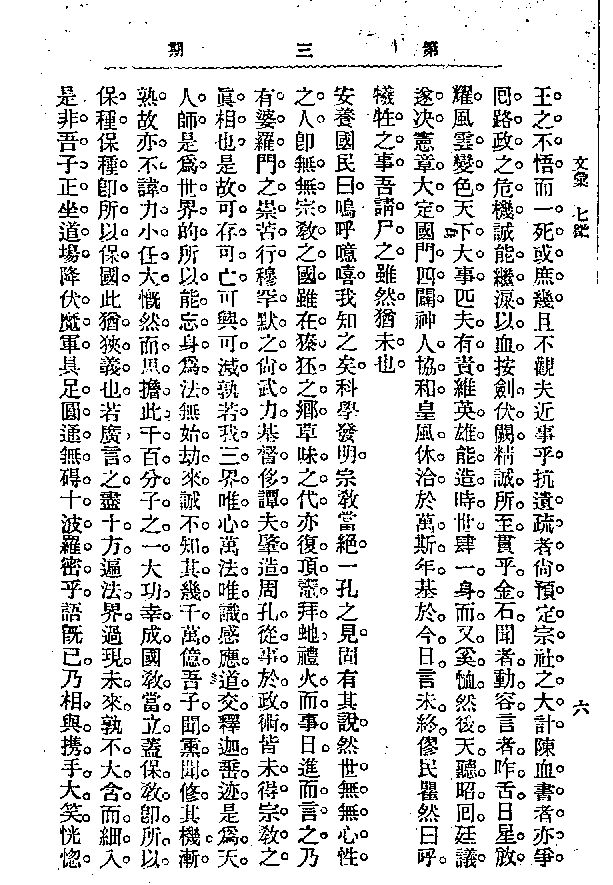 第三期
文彙 七
六
王之不悟而一死或庶幾且不觀夫近事乎抗遺疏者尙預定宗社之大計陳血書者亦爭
囘路政之危機誠能繼淚以血按劍伏闕精誠所至貫乎金石聞者動容言者咋舌日星放
耀風雲變色天下大事匹夫有責維英雄能造時世肆一身而又奚恤然後天聽昭囘廷議
遂决憲章大定國門四闢神人協和皇風休洽於萬斯年基於今日言未終僇民瞿然曰呼
犧牲之事吾請尸之雖然猶未也
安養國民曰嗚呼噫嘻我知之矣科學發明宗敎當絕一孔之見固有其說然世無無心性
之人卽無無宗敎之國雖在獉狉之鄉草昧之代亦復頂禮拜虵禮火而事日進而言之乃
有婆羅門之崇苦行穆罕默之尙武力基督侈譚夫肇造周孔從事於政術皆未得宗敎之
眞相也是故可存可亡可興可滅孰若我三界唯心萬法唯識感應道交釋迦垂迹是爲天
人師是爲世界的所以能忘身爲法無始劫來誠不知其幾千萬億吾子聞熏聞修其機漸
熟故亦不諱力小任大慨然而思擔此千百分子之一大功幸成國敎當立蓋保敎卽所以
保種保種卽所以保國此猶狹義也若廣言之盡十方遍法界過現未來孰不大含而細入
是非吾子正坐道場降伏魔軍具足圓通無碍十波羅密乎語旣已乃相與携手大笑恍惚